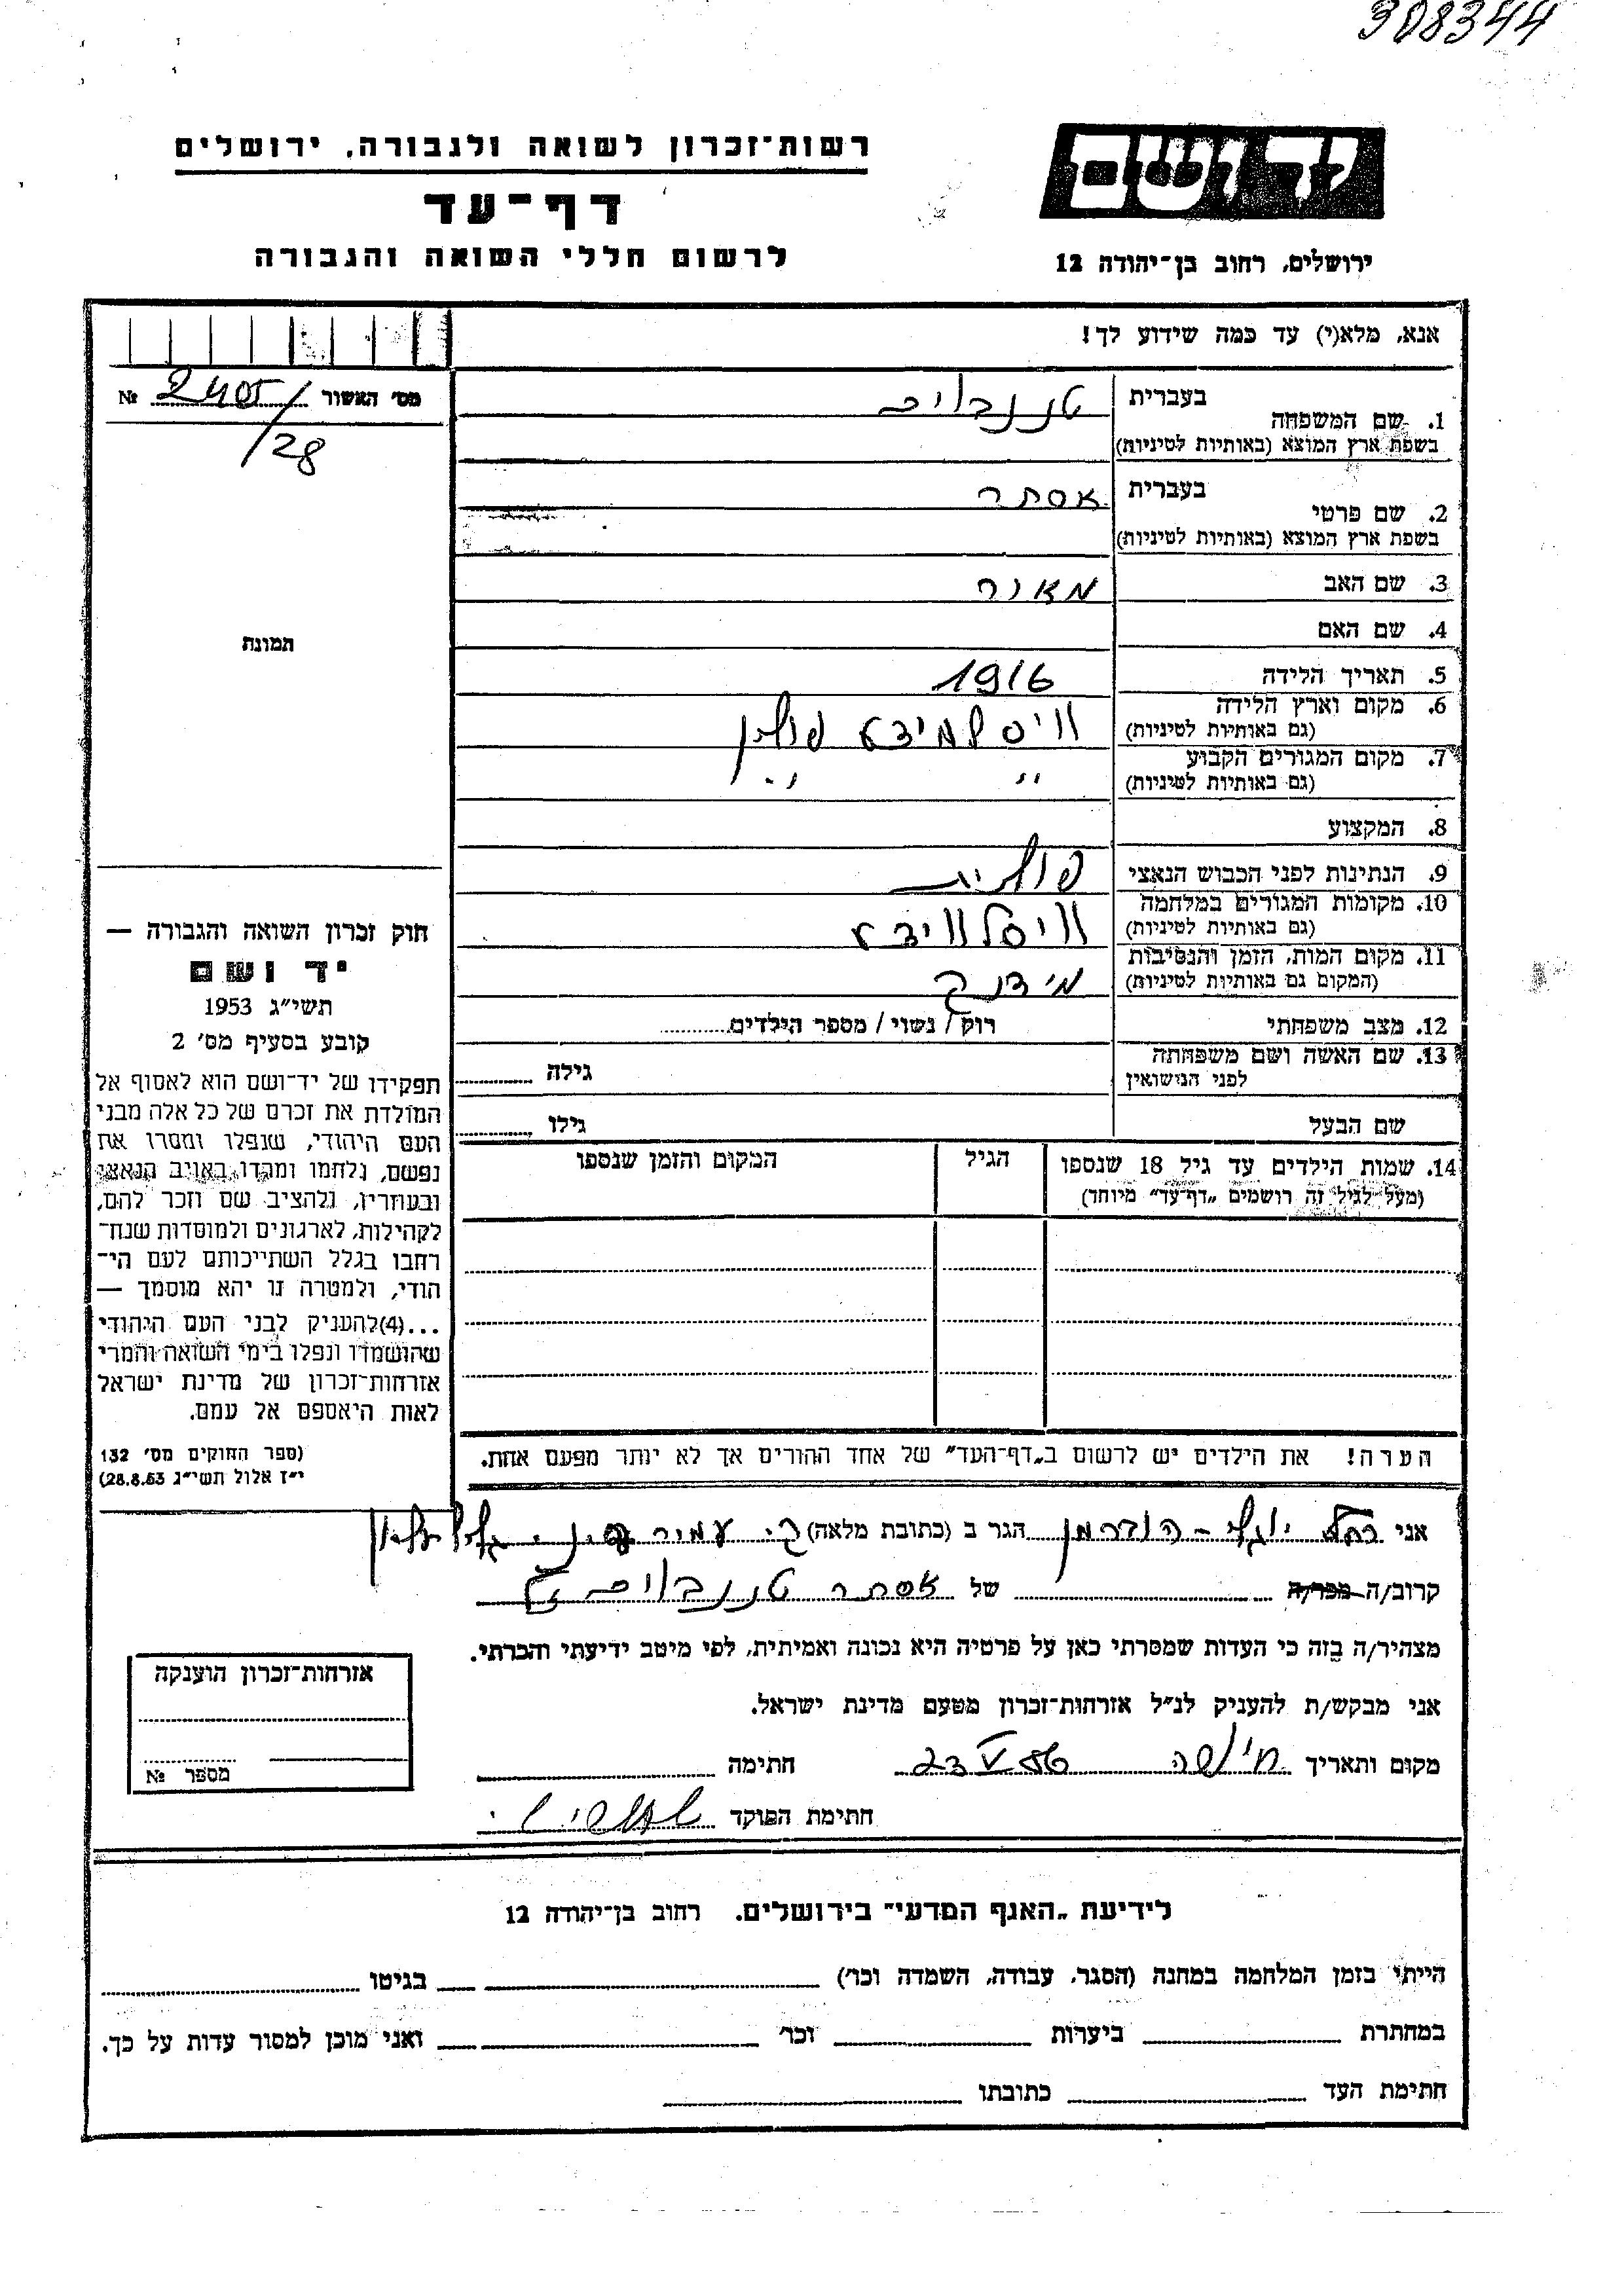 308344
רשות־זכרון לשואה ולגבורה, ירושלים
דף־עד
לרשום חללי השואה והגבורה
יד ושם
ירושלים, רחוב בן־יהודה 12
אנא, מלא(י) עד כמה שידוע לך!
מס' האשור 2405/28 №
1. שם המשפחה
בעברית טננבוים
בשפת ארץ המוצא (באותיות לטיניות)
2. שם פרטי
בעברית אסתר
בשפת ארץ המוצא (באותיות לטיניות)
3. שם האב מאיר
4. שם האם
5. תאריך הלידה 1916
6. מקום וארץ הלידה
(גם באותיות לטיניות) פולין
7. מקום המגורים הקבוע
(גם באותיות לטיניות) " "
8. המקצוע
9. הנתינות לפני הכבוש הנאצי פולנית
10. מקומות המגורים במלחמה
(גם באותיות לטיניות)
11. מקום המות, הזמן והנסיבות
(המקום גם באותיות לטיניות) מידנק
12. מצב משפחתי רוק / נשוי / מספר הילדים
13. שם האשה ושם משפחתה
לפני הנישואין גילה
שם הבעל גילו
14. שמות הילדים עד גיל 18 שנספו
(מעל לגיל זה רושמים „דף־עד" מיוחד)
הגיל
המקום והזמן שנספו
הערה! את הילדים יש לרשום ב„דף־העד" של אחד ההורים אך לא יותר מפעם אחת.
תמונה
חוק זכרון השואה והגבורה —
יד ושם
תשי"ג 1953
קובע בסעיף מס' 2
תפקידו של יד־ושם הוא לאסוף אל
המולדת את זכרם של כל אלה מבני
העם היהודי, שנפלו ומסרו את
נפשם, נלחמו ומרדו באויב הנאצי
ובעוזריו, ולהציב שם וזכר להם,
לקהילות, לארגונים ולמוסדות שנח־
רבו בגלל השתייכותם לעם הי־
הודי, ולמטרה זו יהא מוסמך —
...(4)להעניק לבני העם היהודי
שהושמדו ונפלו בימי השואה והמרי
אזרחות־זכרון של מדינת ישראל
לאות היאספם אל עמם.
(ספר החוקים מס' 132
י"ז אלול תשי"ג 28.8.53)
אני רחל הגר ב (כתובת מלאה) ק. עמיר
קרוב/ה מכר/ה של אסתר טננבוים ז"ל
מצהיר/ה בזה כי העדות שמסרתי כאן על פרטיה היא נכונה ואמיתית, לפי מיטב ידיעתי והכרתי.
אני מבקש/ת להעניק לנ"ל אזרחות־זכרון מטעם מדינת ישראל.
מקום ותאריך חיפה 23 V 86 חתימה
חתימת הפוקד
אזרחות־זכרון הוענקה
מספר №
לידיעת „האגף המדעי" בירושלים. רחוב בן־יהודה 12
הייתי בזמן המלחמה במחנה (הסגר, עבודה, השמדה וכו') בגיטו
במחתרת ביערות וכו' ואני מוכן למסור עדות על כך.
חתימת העד כתובתו